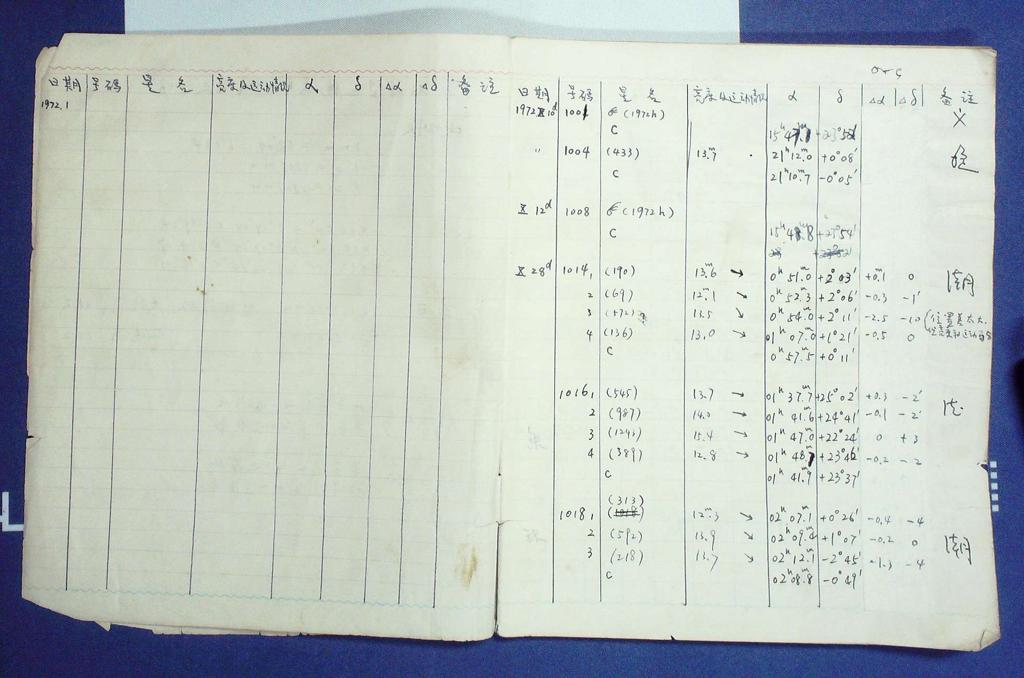 日期 号码 星名 亮度及运动情况 α δ Δα Δδ 备注
1972.1
O-C
日期 号码 星名 亮度及运动情况 α δ Δα Δδ 备注
1972 X 10ᵈ 1001 (1972h)
C 15ʰ 47ᵐ.1 +23°52'
" 1004 (433) 13.7 21ʰ12ᵐ.0 +0°08'
C 21ʰ10ᵐ.7 -0°05'
X 12ᵈ 1008 (1972h)
C 15ʰ48ᵐ.8 +23°54'
X 28ᵈ 1014, (190) 13ᵐ.6 ↗ 0ʰ51ᵐ.0 +2°03' +0.1 0
2 (69) 12ᵐ.1 ↘ 0ʰ52ᵐ.3 +2°06' -0.3 -1'
3 (572) 13.5 ↗ 0ʰ54ᵐ.0 +2°11' -2.5 -10 (位置差太大,
4 (136) 13.0 ↗ 01ʰ07ᵐ.0 +1°21' -0.5 0
C 0ʰ57ᵐ.5 +0°11'
1016, (545) 13.7 → 01ʰ37ᵐ.7 +25°02' +0.3 -2'
2 (987) 14.0 → 01ʰ41ᵐ.6 +24°41' -0.1 -2'
3 (1243) 15.4 → 01ʰ47ᵐ.0 +22°24' 0 +3
4 (389) 12.8 → 01ʰ48ᵐ.7 +23°46' -0.2 -2
C 01ʰ41ᵐ.9 +23°37'
(313)
1018, 12ᵐ.3 ↘ 02ʰ07ᵐ.1 +0°26' -0.4 -4
2 (592) 13.9 ↘ 02ʰ09ᵐ.4 +1°07' -0.2 0
3 (218) 13.7 ↘ 02ʰ12ᵐ.1 -2°45' -1.3 -4
C 02ʰ08ᵐ.8 -0°49'